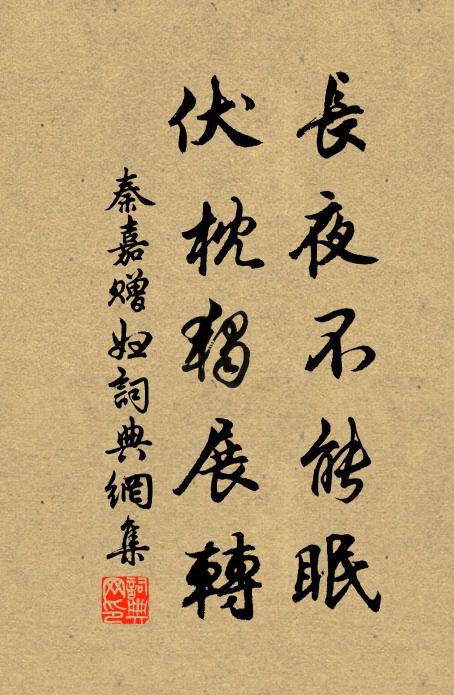 長夜不能眠
伏枕獨展轉
秦嘉贈婦詞典網集
詞典網印